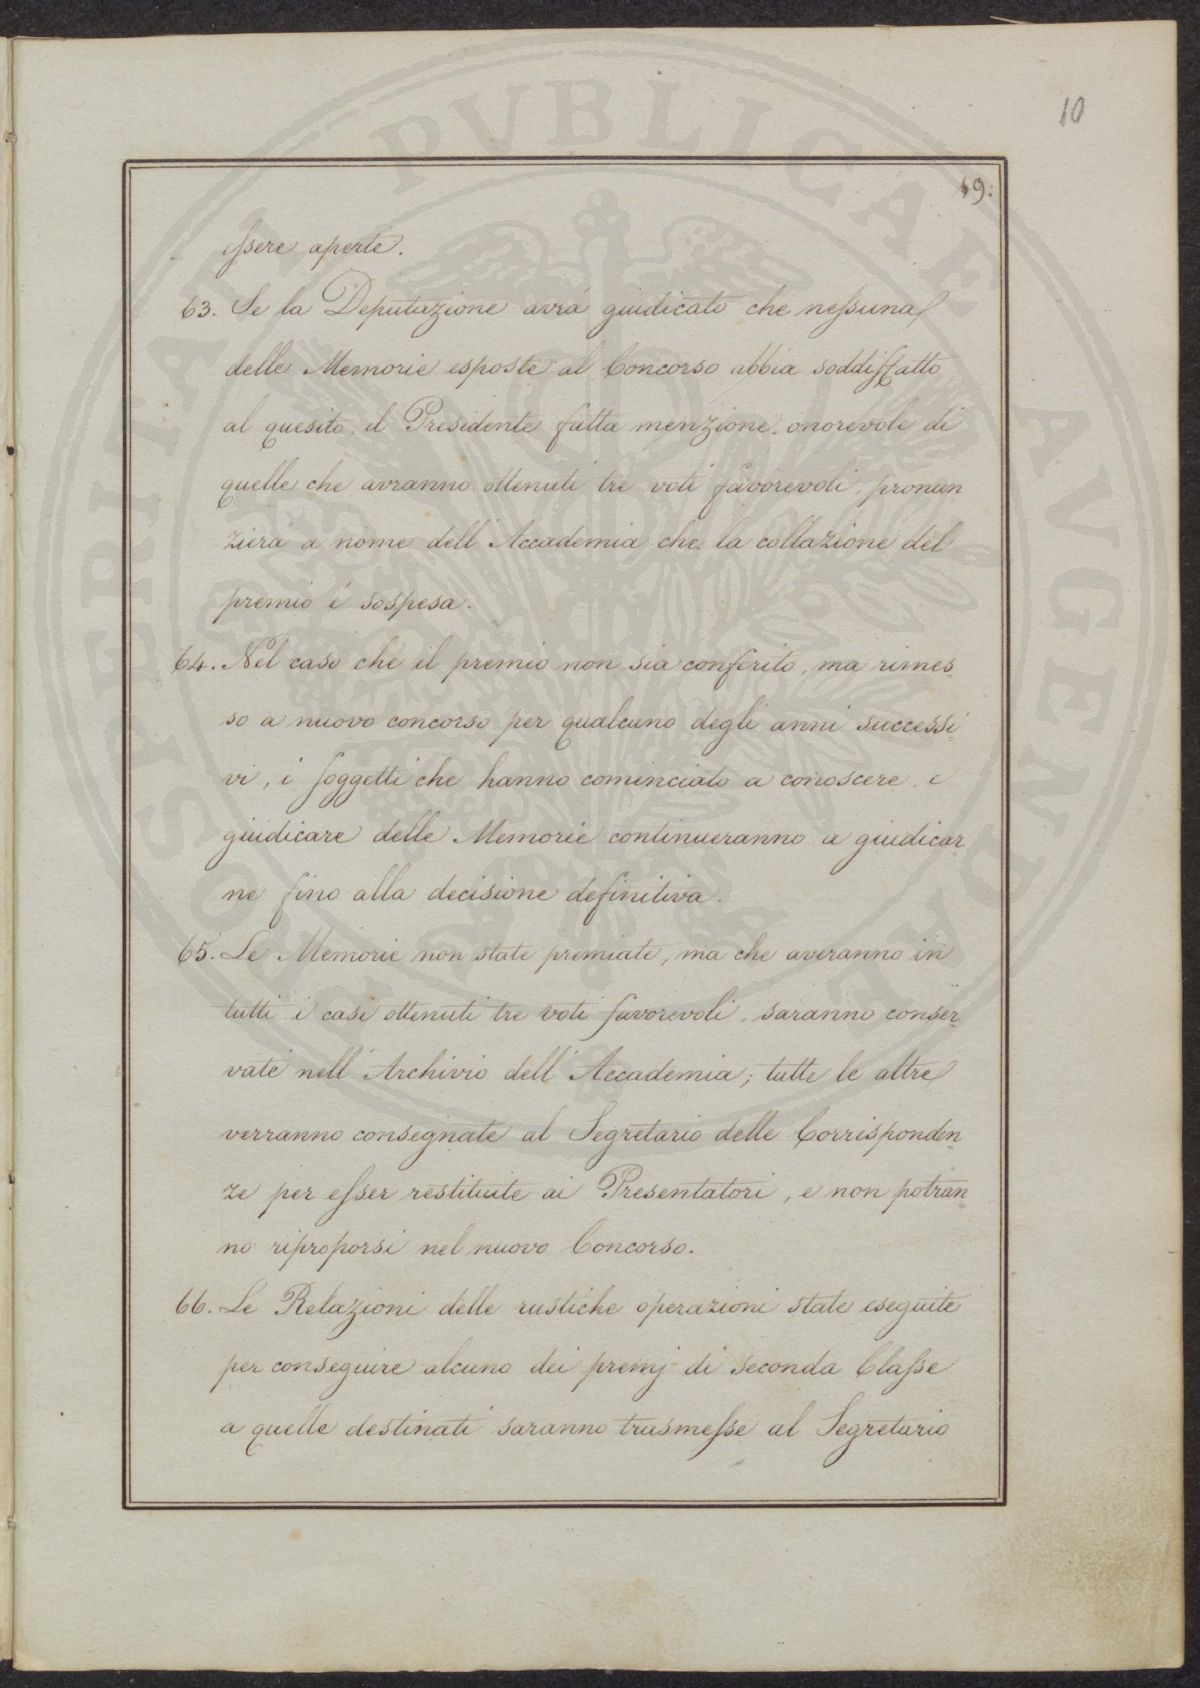 10
19:
essere aperte.
63. Se la Deputazione avrà giudicato che nessuna
delle Memorie esposte al Concorso abbia soddisfatto
al quesito, il Presidente fatta menzione onorevole di
quelle che avranno ottenuti tre voti favorevoli, pronun
zierà a nome dell'Accademia che la collazione del
premio è sospesa.
64. Nel caso che il premio non sia conferito, ma rimes-
so a nuovo concorso per qualcuno degli anni successi-
vi, i soggetti che hanno cominciato a conoscere, e
giudicare delle Memorie continueranno a giudicar
ne fino alla decisione definitiva.
65. Le Memorie non state premiate, ma che averanno in
tutti i casi ottenuti tre voti favorevoli, saranno conser-
vate nell'Archivio dell'Accademia; tutte le altre
verranno consegnate al Segretario delle Corrisponden-
ze per esser restituite ai Presentatori, e non potran-
no riproporsi nel nuovo Concorso.
66. Le Relazioni delle rustiche operazioni state eseguite
per conseguire alcuno dei premj di seconda Classe
a quelle destinati saranno trasmesse al Segretario
PUBLICAE AUGENDAE
PROSPERITATI